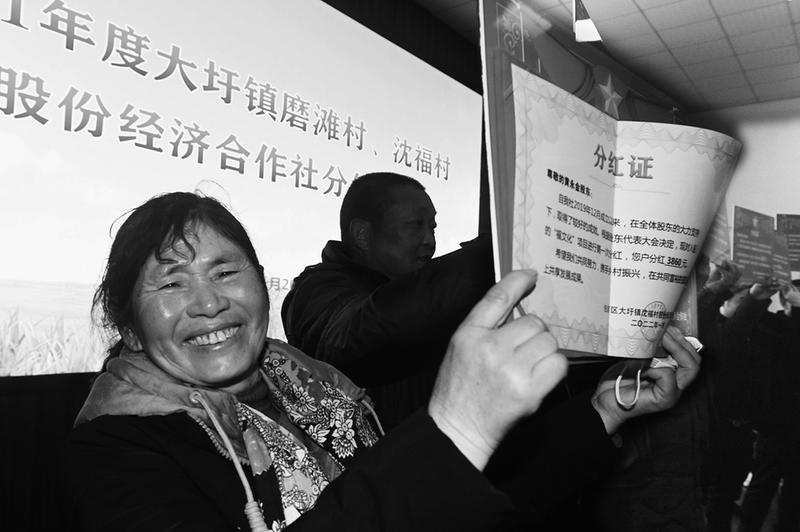 1年度大圩镇磨滩村、沈福村
股份经济合作社分
月2
分红证
尊敬的黄永金股东:
自我社2019年12月成立以来,在全体股东的大力支持
下,取得了较好的成效。根据股东代表大会决定,现对入股
的“福文化”项目进行第一次分红,您户分红3860元。
希望我们共同努力,携手乡村振兴,在共同富裕的道路
上共享发展成果。
包河区大圩镇沈福村股份经济
二〇二二年一月